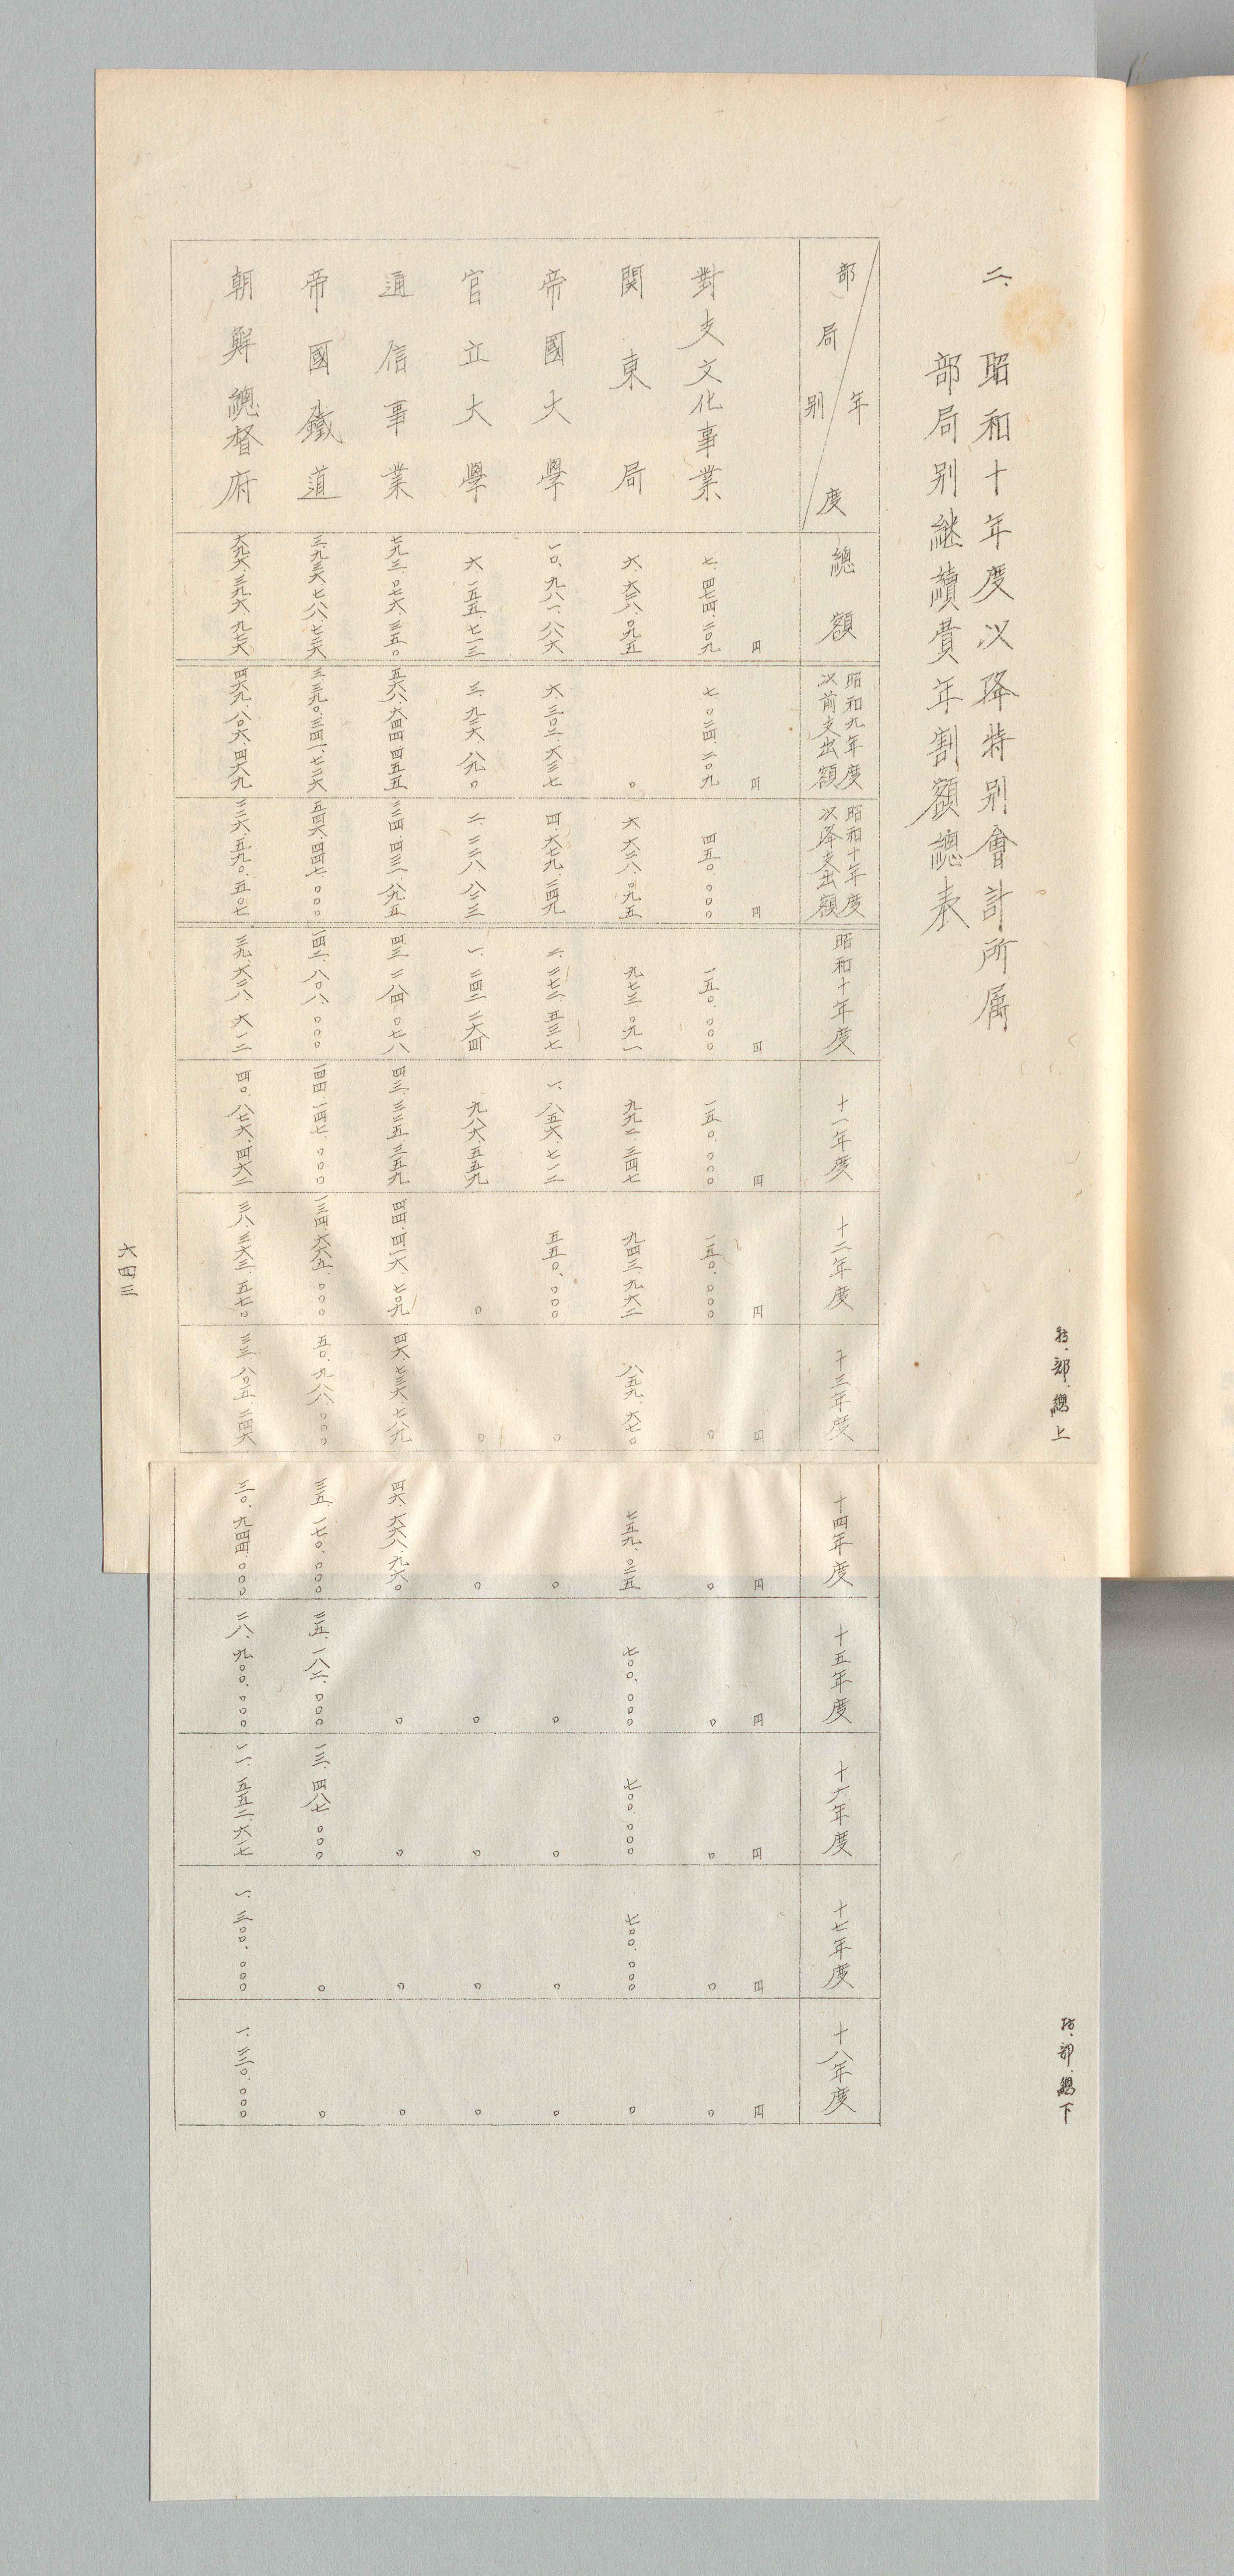 特、部、總 上
特、部、總 下
二、昭和十年度以降特別會計所属
部局別継續費年割額總表
部局別 年度 總額 昭和九年度以前支出額 昭和十年度以降支出額 昭和十年度 十一年度 十二年度 十三年度 十四年度 十五年度 十六年度 十七年度 十八年度
円 円 円 円 円 円 円 円 円 円 円 円
對支文化事業 七、四七四、二〇九 七、〇二四、二〇九 四五〇、〇〇〇 一五〇、〇〇〇 一五〇、〇〇〇 一五〇、〇〇〇 〇 〇 〇 〇 〇 〇
関東局 六、六二八、〇九五 〇 六、六二八、〇九五 九七三、〇九一 九九二、三四七 九四三、九六二 八五九、六七〇 七五九、〇二五 七〇〇、〇〇〇 七〇〇、〇〇〇 七〇〇、〇〇〇 〇
帝國大學 一〇、九八一、八八六 六、三〇二、六三七 四、六七九、二四九 二、二七二、五三七 一、八五六、七一二 五五〇、〇〇〇 〇 〇 〇 〇 〇 〇
官立大學 六、一五五、七一三 三、九二六、八九〇 二、二二八、八二三 一、二四二、二六四 九八六、五五九 〇 〇 〇 〇 〇 〇 〇
通信事業 七九三、〇七六、三五〇 五六八、六四四、四五五 二二四、四三一、八九五 四三、二八四、〇七八 四三、三二五、三五九 四四、四一六、七〇九 四六、七三六、七八九 四六、六六八、九六〇 〇 〇 〇 〇
帝國鐵道 三、九三六、七八八、七二六 三、三九〇、三四一、七二六 五四六、四四七、〇〇〇 一四二、八〇八、〇〇〇 一四四、一四七、〇〇〇 一三四、六六五、〇〇〇 五〇、九八八、〇〇〇 三五、一七〇、〇〇〇 二五、一八二、〇〇〇 一三、四八七、〇〇〇 〇 〇
朝鮮總督府 六九六、三九六、九七六 四六九、八〇六、四六九 二二六、五九〇、五〇七 三九、六二八、六一二 四〇、八七六、四六二 三八、三六三、五七〇 三三、八〇五、二四六 三〇、九四四、〇〇〇 二八、九〇〇、〇〇〇 一一、五五二、六一七 一、三〇〇、〇〇〇 一、二二〇、〇〇〇
六四三